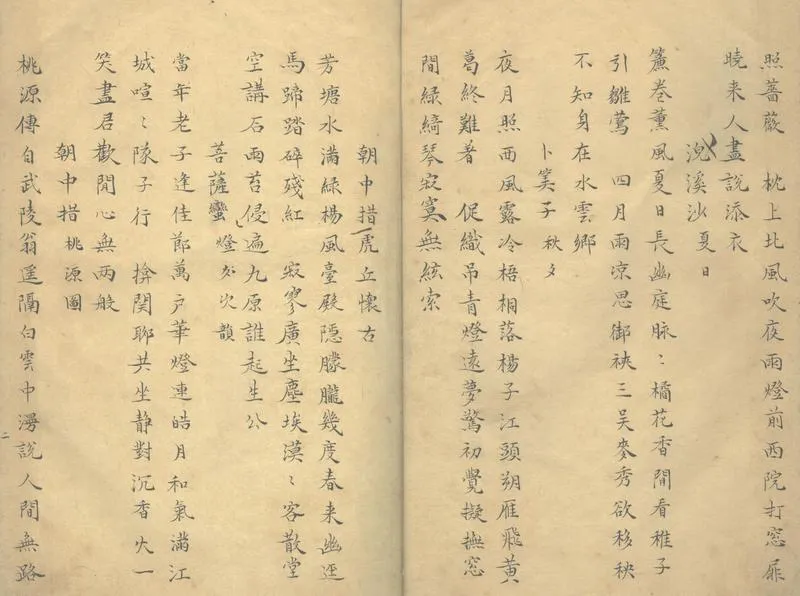 照薔薇　枕上北風吹夜雨燈前西院打窓扉
曉来人盡説添衣
浣溪沙 夏日
簾卷薰風夏日長幽庭脉〻橘花香閒看稚子
引雛鶯　四月雨凉思御裌三吴麥秀欲移秧
不知身在水雲鄉
卜筭子 秋夕
夜月照西風露冷梧桐落楊子江頭朔雁飛黄
葛終難着　促織吊青燈遠夢驚初覺擬撫窓
間緑綺琴寂寞無絃索
朝中措 虎丘懷古
芳塘水滿緑楊風臺殿隠朦朧幾度春来幽逕
馬蹄踏碎殘紅　寂寥廣坐塵埃漠〻客散堂
空講石雨苔侵遍九原誰起生公
菩薩蠻 燈夕次韻
當年老子逢佳節萬户華燈連皓月和氣滿江
城喧〻隊子行　掩関聊共坐静對沉香火一
笑盡君歡閒心無两般
朝中措 桃源圖
桃源傳自武陵翁遥隔白雲中漫説人間無路
二